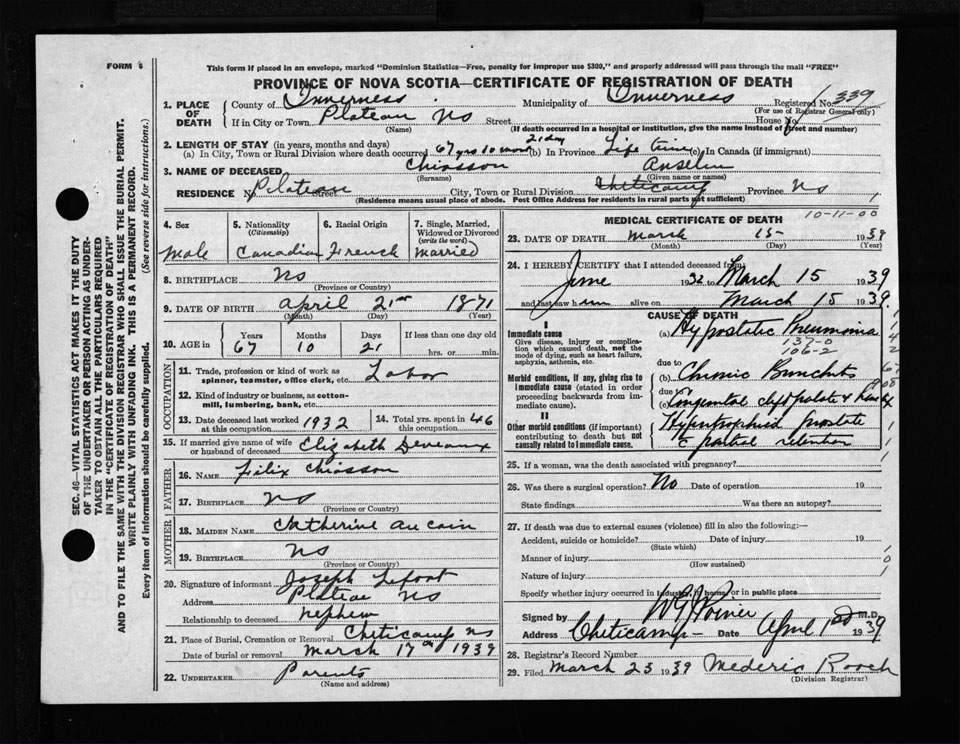 FORM 6
This form if placed in an envelope, marked "Dominion Statistics—Free, penalty for improper use $300," and properly addressed will pass through the mail "FREE"
PROVINCE OF NOVA SCOTIA—CERTIFICATE OF REGISTRATION OF DEATH
1. PLACE OF DEATH County of Inverness Municipality of Inverness Registered No. 339
(For use of Registrar General only)
If in City or Town Plateau NS Street House No
(Name) (If death occurred in a hospital or institution, give the name instead of street and number)
2. LENGTH OF STAY (in years, months and days)
(a) In City, Town or Rural Division where death occurred 67 yrs 10 mos 21 day (b) In Province Life time (c) In Canada (if immigrant)
3. NAME OF DECEASED Chiasson Anselm
(Surname) (Given name or names)
RESIDENCE No Plateau City, Town or Rural Division Cheticamp Province NS 1
(Residence means usual place of abode. Post Office Address for residents in rural parts not sufficient)
4. Sex
Male
5. Nationality (Citizenship)
Canadian
6. Racial Origin
French
7. Single, Married, Widowed or Divorced (write the word)
Married
8. BIRTHPLACE NS
(Province or Country)
9. DATE OF BIRTH April 21st 1871
(Month) (Day) (Year)
10. AGE in Years Months Days If less than one day old
67 10 21 hrs. or min.
OCCUPATION
11. Trade, profession or kind of work as spinner, teamster, office clerk, etc. Labor
12. Kind of industry or business, as cotton-mill, lumbering, bank, etc.
13. Date deceased last worked at this occupation 1932
14. Total yrs. spent in this occupation 46
15. If married give name of wife or husband of deceased Elizabeth Deveaux
FATHER
16. NAME Filix Chiasson
17. BIRTHPLACE NS
(Province or Country)
MOTHER
18. MAIDEN NAME Catherine Aucoin
19. BIRTHPLACE NS
(Province or Country)
20. Signature of informant Joseph Lefort
Address Plateau NS
Relationship to deceased nephew
21. Place of Burial, Cremation or Removal Cheticamp NS
Date of burial or removal March 17th 1939
22. UNDERTAKER Parents
(Name and address)
MEDICAL CERTIFICATE OF DEATH
10-11-00
23. DATE OF DEATH March 15 1939
(Month) (Day) (Year)
24. I HEREBY CERTIFY that I attended deceased from
June 1932 to March 15 1939
and last saw him alive on March 15 1939.
CAUSE OF DEATH
I
Immediate cause
Give disease, injury or complication which caused death, not the mode of dying, such as heart failure, asphyxia, asthenia, etc.
(a) Hypostatic Pneumonia
137-0
106-2
due to
Morbid conditions, if any, giving rise to immediate cause (stated in order proceeding backwards from immediate cause).
(b) Chronic Bronchitis
due to
(c) Congenital cleft palate &
II
Other morbid conditions (if important) contributing to death but not causally related to immediate cause.
Hypertrophied prostate
c partial retention
25. If a woman, was the death associated with pregnancy?
26. Was there a surgical operation? No Date of operation 19
State findings Was there an autopsy?
27. If death was due to external causes (violence) fill in also the following:—
Accident, suicide or homicide? Date of injury 19
(State which)
Manner of injury
(How sustained)
Nature of injury
Specify whether injury occurred in industry, in home, or in public place
Signed by W G Poirier M.D.
Address Cheticamp Date April 1939
28. Registrar's Record Number
29. Filed March 23 1939 Mederic Roach
(Division Registrar)
SEC. 46—VITAL STATISTICS ACT MAKES IT THE DUTY
OF THE UNDERTAKER OR PERSON ACTING AS UNDERTAKER TO OBTAIN ALL THE PARTICULARS REQUIRED
IN THE "CERTIFICATE OF REGISTRATION OF DEATH"
AND TO FILE THE SAME WITH THE DIVISION REGISTRAR WHO SHALL ISSUE THE BURIAL PERMIT.
WRITE PLAINLY WITH UNFADING INK. THIS IS A PERMANENT RECORD.
Every item of information should be carefully supplied. (See reverse side for instructions.)